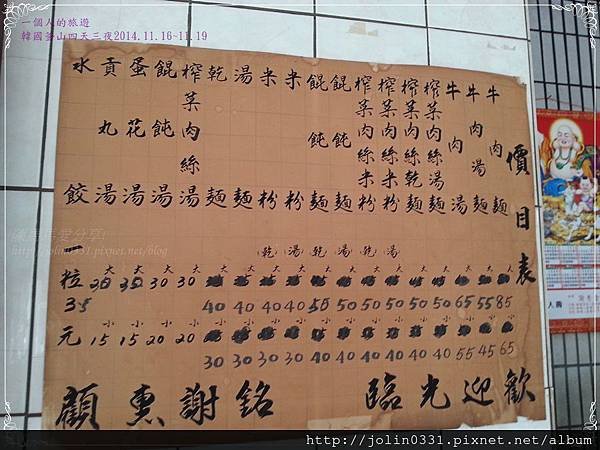 一個人的旅遊
韓國釜山四天三夜2014.11.16~11.19
價目表
牛肉麵 大 85 小 65
牛肉湯麵 大 55 小 45
牛肉湯 大 65 小 55
榨菜肉絲湯麵 大 50 小 40
榨菜肉絲乾麵 大 50 小 40
榨菜肉絲米粉(湯) 大 50 小 40
榨菜肉絲米粉(乾) 大 50 小 40
餛飩麵(湯) 大 50 小 40
餛飩麵(乾) 大 55 小 40
米粉(湯) 大 40 小 30
米粉(乾) 大 40 小 30
湯麵 大 40 小 30
乾麵 大 40 小 30
榨菜肉絲湯 大 30 小 20
餛飩湯 大 30 小 20
蛋花湯 大 小 15
貢丸湯 大 小 15
水餃一粒3.5元
歡迎光臨
銘謝惠顧
http://jolin0331.pixnet.net/blog
http://jolin0331.pixnet.net/album